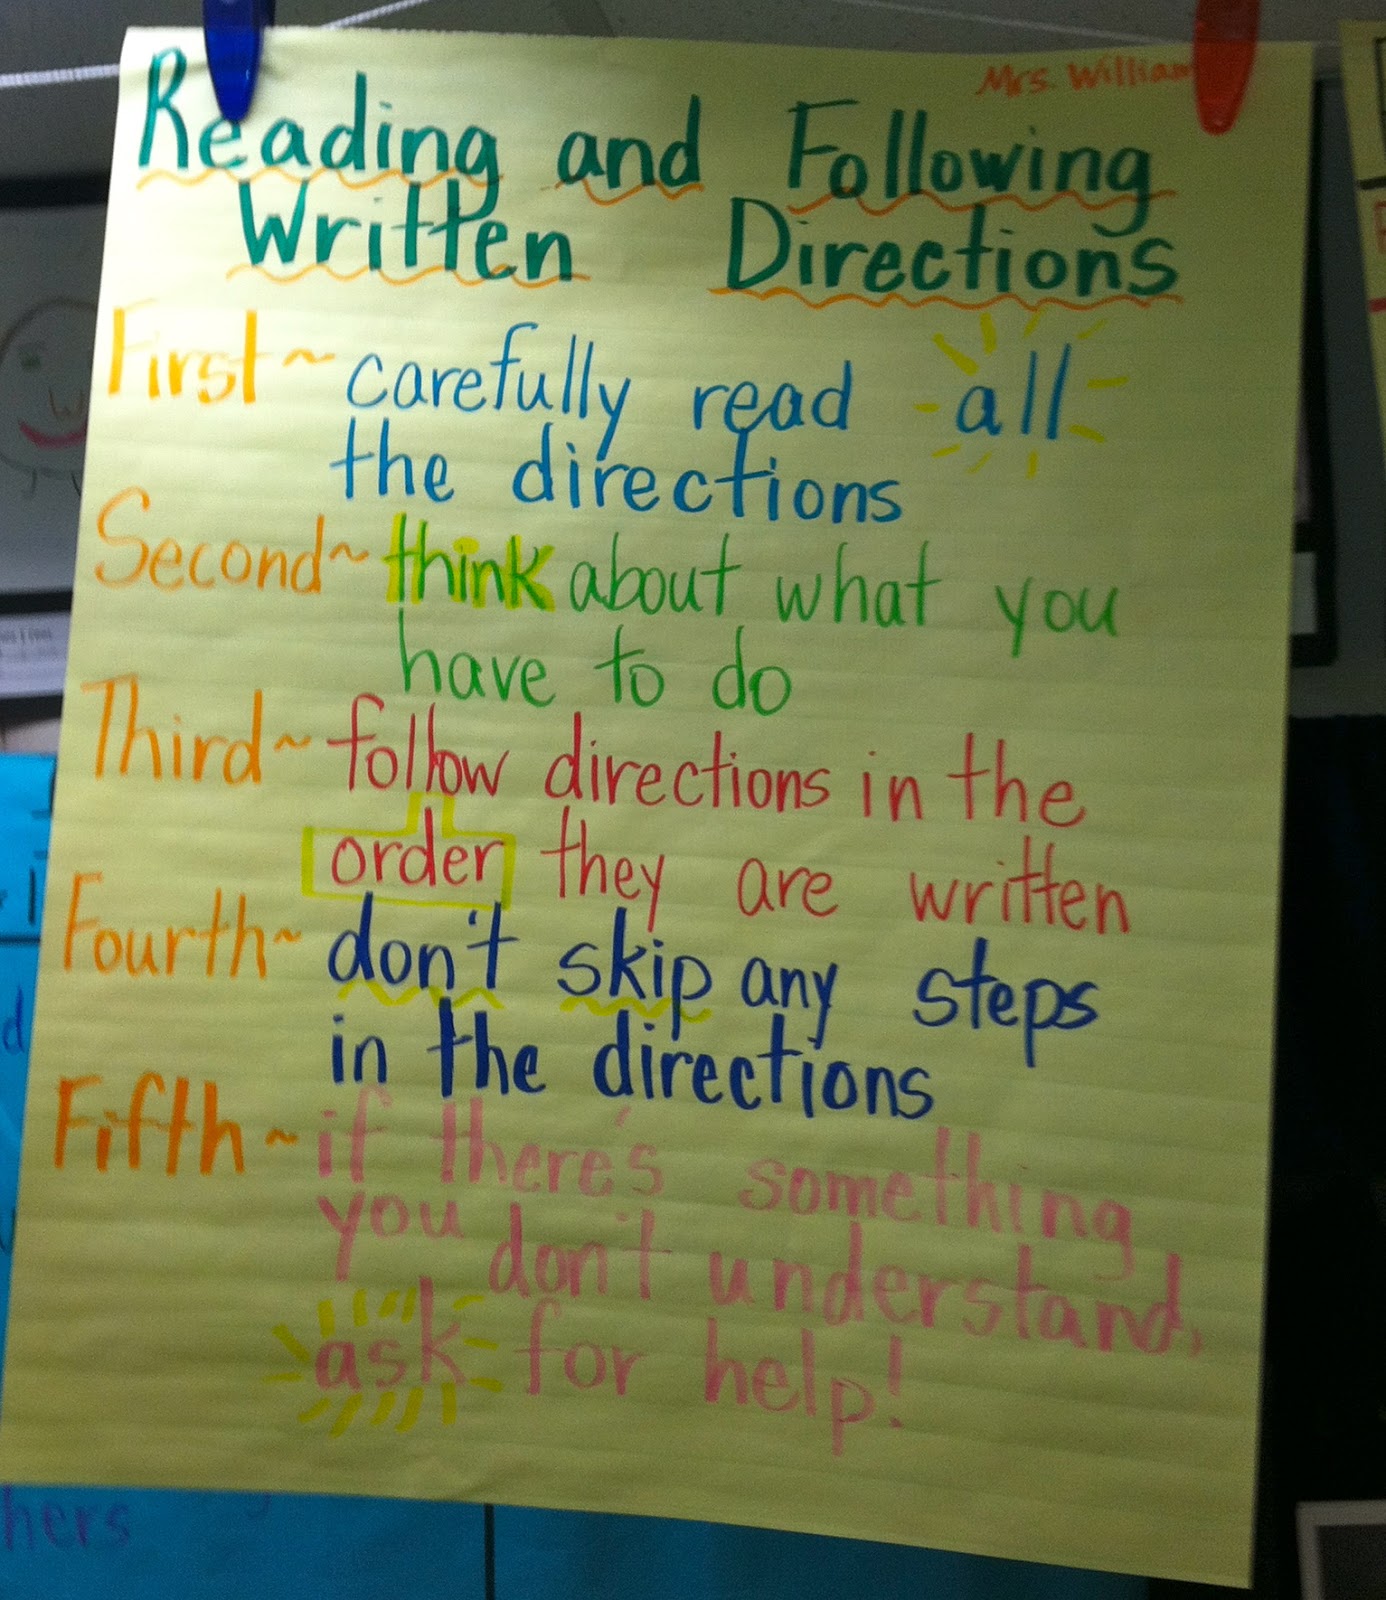 Mrs. William
Reading and Following
Written Directions
First~ carefully read all
the directions
Second~ think about what you
have to do
Third~ follow directions in the
order they are written
Fourth~ don't skip any steps
in the directions
Fifth~ if there's something
you don't understand,
ask for help!
hers